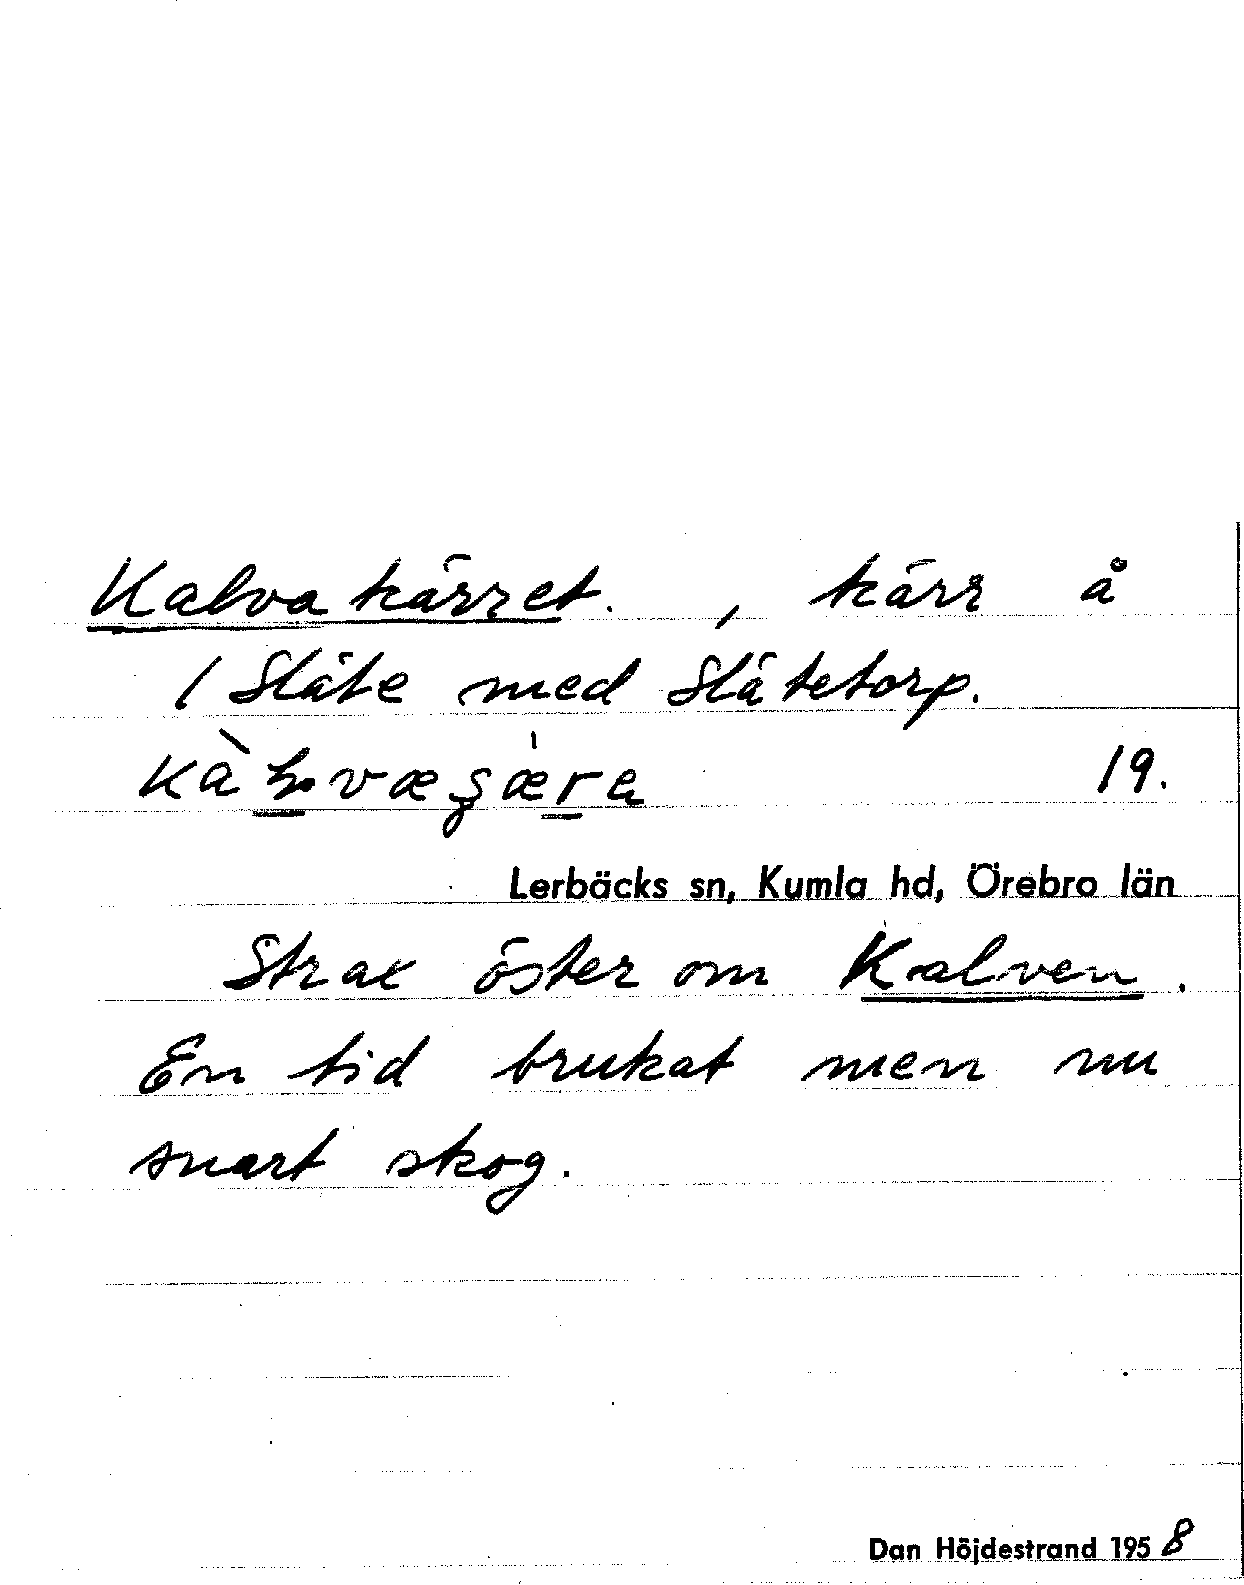 Kalvakärret. , kärr å
1 Slåte med Slåtetorp.
19.
Lerbäcks sn, Kumla hd, Örebro län
Strax öster om Kalven.
En tid brukat men nu
snart skog.
Dan Höjdestrand 1958